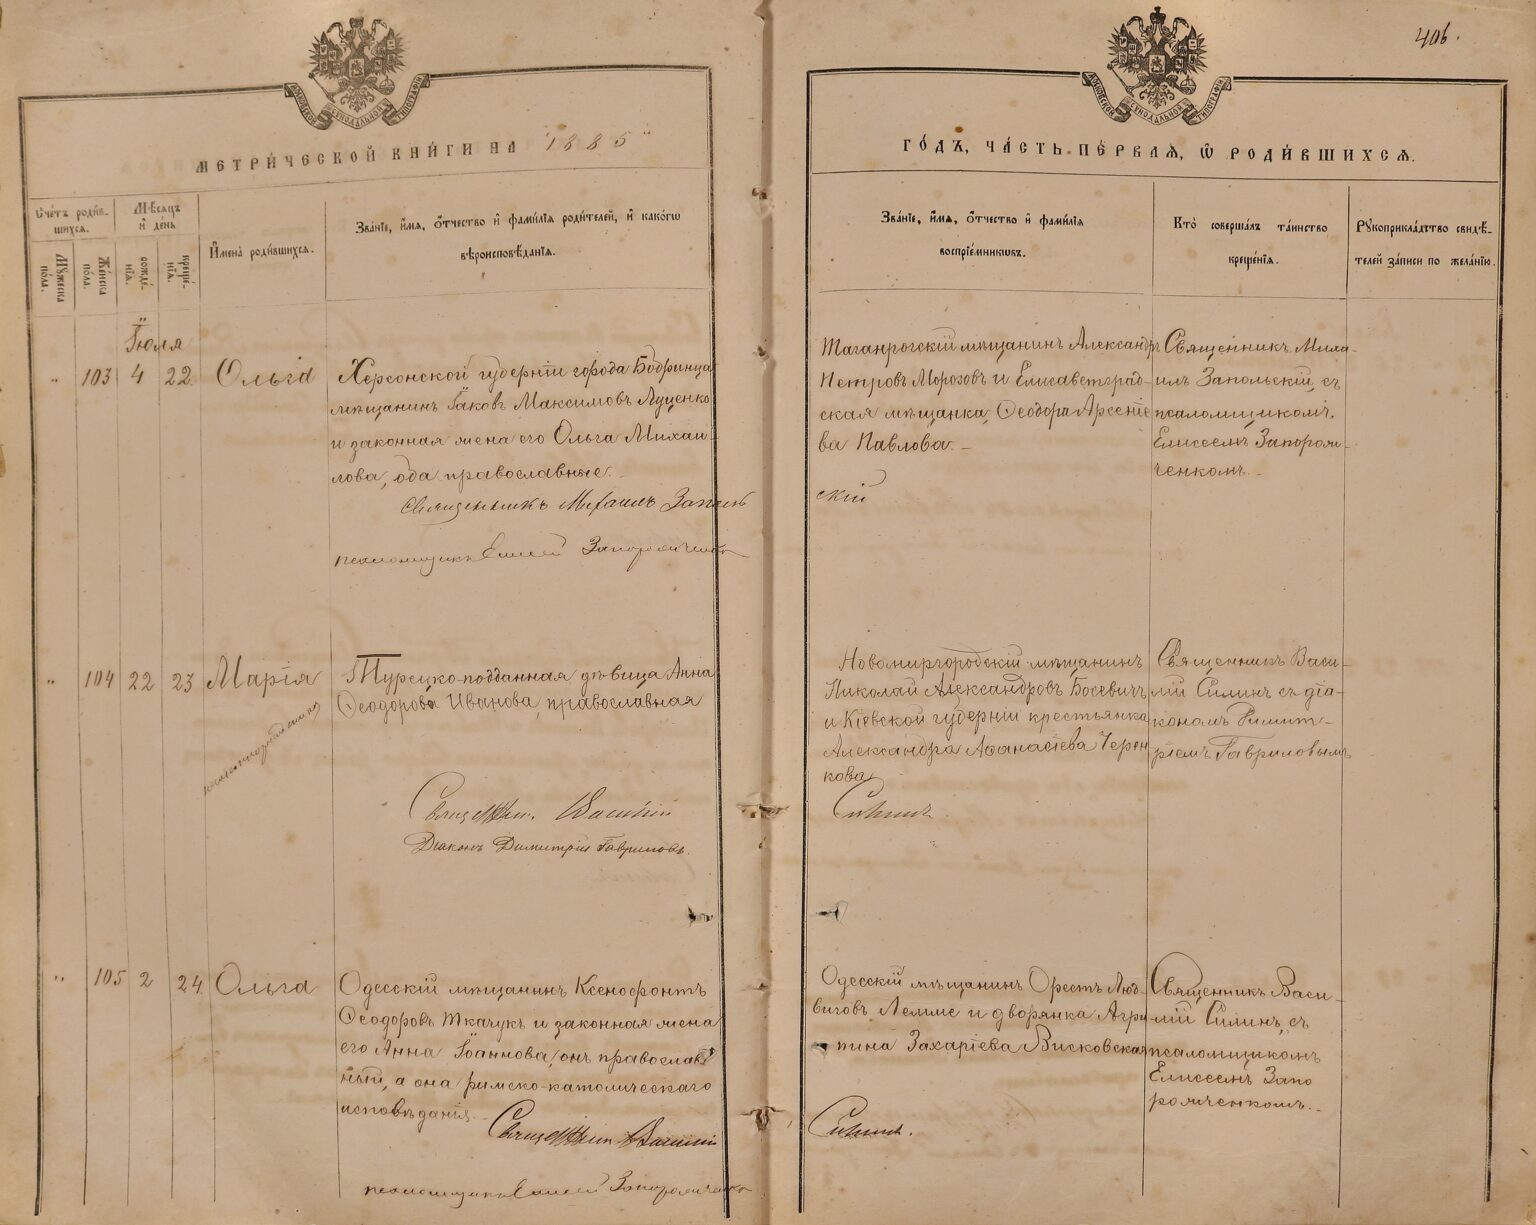 406.
МОСКОВСКОЙ СѴНОДАЛЬНОЙ ТИПОГРАФІИ
МОСКОВСКОЙ СѴНОДАЛЬНОЙ ТИПОГРАФІИ
МЕТРИ́ЧЕСКОЙ КНИ́ГИ НА "1885"
ГО́ДЪ, ЧА́СТЬ ПЕ́РВАѦ, Ѡ҆ РОДИ́ВШИХСѦ.
Сче́тъ роди́в-
шихсѧ.
Мѣ́сѧцъ
и҆ де́нь
Мꙋ́жеска по́ла.
Же́нска по́ла.
рожде́-
нїѧ.
креще́-
нїѧ.
И҆мена̀ роди́вшихсѧ.
Зва́нїе, и҆́мѧ, ѻ҆́тчество и҆ фами́лїѧ роди́телей, и҆ како́гѡ
вѣроисповѣ́данїѧ.
Зва́нїе, и҆́мѧ, ѻ҆́тчество и҆ фами́лїѧ
воспрїе́мникѡвъ.
Кто̀ соверша́лъ та́инство
креще́нїѧ.
Рꙋкоприкла́дство свидѣ́-
телей за́писи по жела́нїю.
Іюля
" 103 4 22. Ольга
Херсонской губерніи города Бобринца
мѣщанинъ Іаковъ Максимовъ Луценко
и законная жена его Ольга Михаи-
лова, оба православные.
Священникъ Михаилъ Заполь
псаломщикъ Елисей Запорожченко
Таганрогскій мѣщанинъ Александръ
Петровъ Морозовъ и Елисаветград-
ская мѣщанка Ѳеодора Арсеніе
ва Павлова.
скій
Священникъ Миха-
илъ Запольскій съ
псаломщикомъ
Елисеемъ Запорож-
ченкомъ.
" 104 22 23 Марія
незаконнорожденная
Турецко-подданная дѣвица Анна
Ѳеодорова Иванова, православная
Священ. Василій
Діаконъ Димитрій Гавриловъ.
Новомиргородскій мѣщанинъ
Николай Александровъ Босевичъ
и Кіевской губерніи крестьянка
Александра Аѳанасіева Черен
кова
Силинъ
Священникъ Васи-
лій Силинъ съ діа-
кономъ Димит-
ріемъ Гавриловымъ
" 105 2 24. Ольга
Одесскій мѣщанинъ Ксенофонтъ
Ѳеодоровъ Ткачукъ и законная жена
его Анна Іоаннова, онъ православ
ный, а она римско-католическаго
исповѣданія.
Священ. Василій
псаломщикъ Елисей Запорожченко
Одесскій мѣщанинъ Орестъ Люд-
виговъ Лемме и дворянка Агри
пина Захаріева Висковская
Силинъ.
Священникъ Васи-
лій Силинъ, съ
псаломщикомъ
Елисеемъ Запо
рожченкомъ.